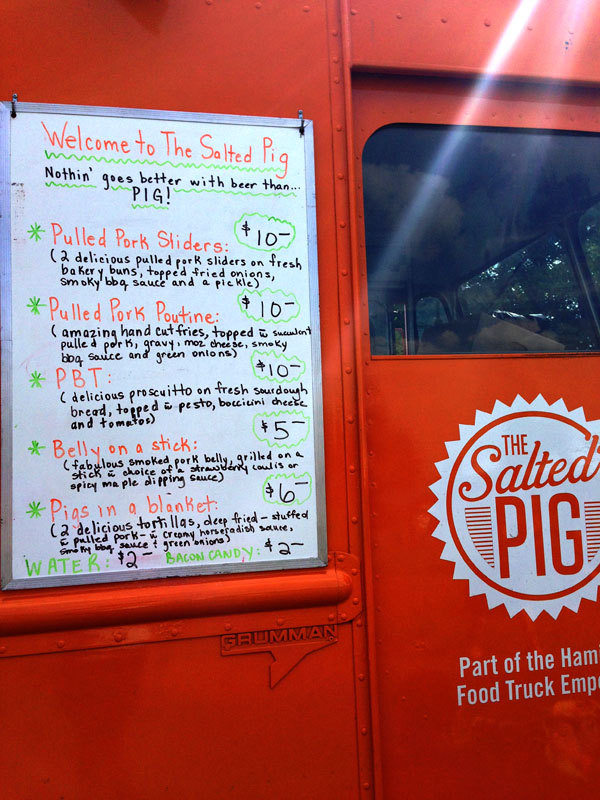 Welcome to The Salted Pig
Nothin' goes better with beer than...
PIG!
* Pulled Pork Sliders: $10-
(2 delicious pulled pork sliders on fresh
bakery buns, topped fried onions,
smoky bbq sauce and a pickle)
* Pulled Pork Poutine: $10-
(amazing hand cut fries, topped w succulent
pulled pork, gravy, moz cheese, smoky
bbq sauce and green onions)
* PBT: $10-
(delicious proscuitto on fresh sourdough
bread, topped w pesto, boccicini cheese
and tomatos)
* Belly on a stick: $5-
(fabulous smoked pork belly, grilled on a
stick w choice of a strawberry coulis or
spicy maple dipping sauce)
* Pigs in a blanket: $6-
(2 delicious tortillas, deep fried - stuffed
w pulled pork - w creamy horseradish sauce,
smoky bbq sauce + green onions)
WATER: $2- BACON CANDY: $2-
GRUMMAN
THE
Salted
PIG
Part of the Hami
Food Truck Empo